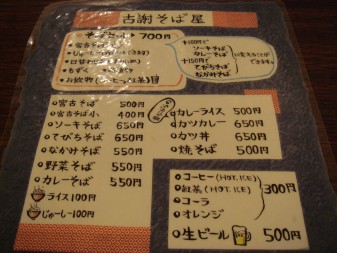 古謝そば屋
そばセット 700円
宮古そば
じゅーしー
もずく
+100円で
ソーキそば
カレーそば
+150円で
てびちそば
なかみそば
宮古そば 500円
宮古そば小 400円
ソーキそば 650円
てびちそば 650円
なかみそば 550円
野菜そば 550円
カレーそば 550円
ライス 100円
じゅーしー 100円
カレーライス 500円
カツカレー 650円
カツ丼 650円
焼そば 500円
コーヒー(HOT.ICE)
紅茶(HOT.ICE)
コーラ
オレンジ
300円
生ビール 500円